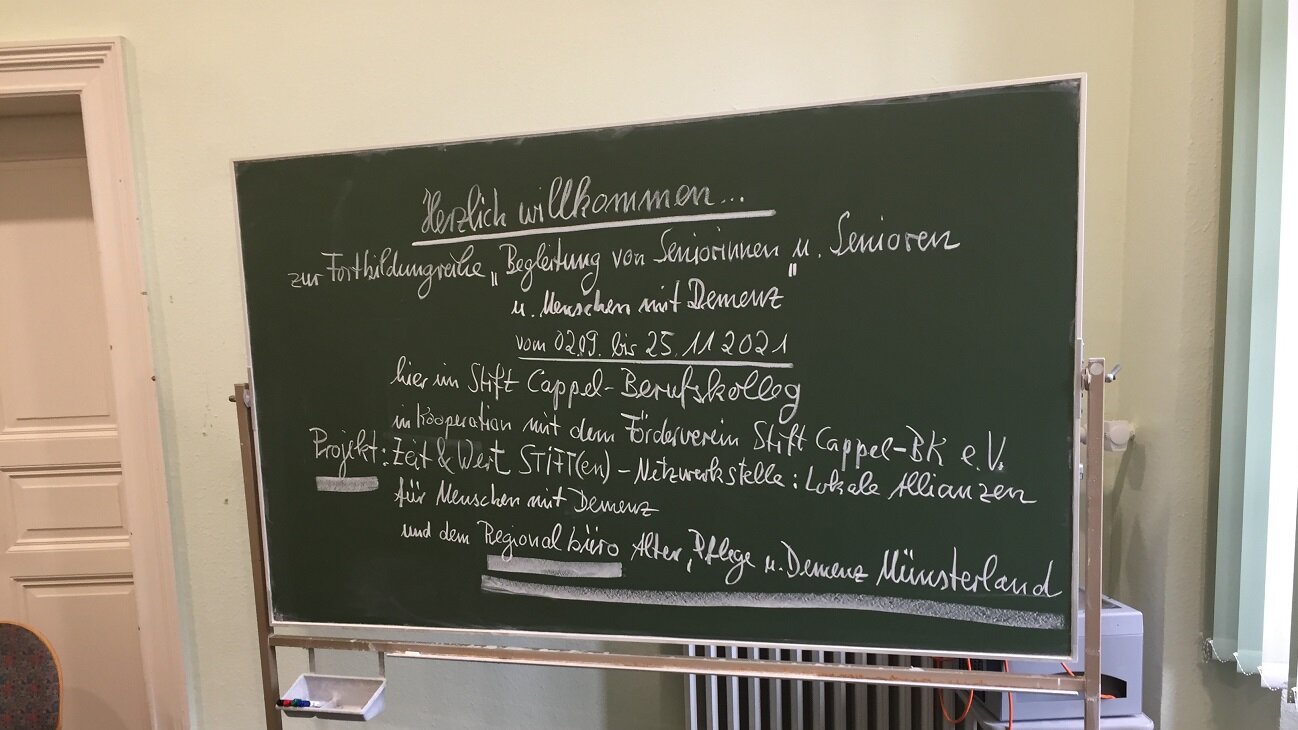 Herzlich willkommen...
zur Fortbildungsreihe „Begleitung von Seniorinnen u. Senioren
u. Menschen mit Demenz"
vom 02.09. bis 25.11.2021
hier im Stift Cappel-Berufskolleg
in Kooperation mit dem Förderverein Stift Cappel-BK e.V.
Projekt: Zeit & Wert STIFT(en) - Netzwerkstelle: Lokale Allianzen
für Menschen mit Demenz
und dem Regionalbüro Alter, Pflege u. Demenz Münsterland